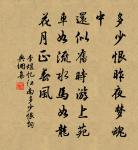 多少恨昨夜夢魂
中
還似舊時游上苑
車如流水馬如龍
花月正春風
李煜憶江南多少恨詞